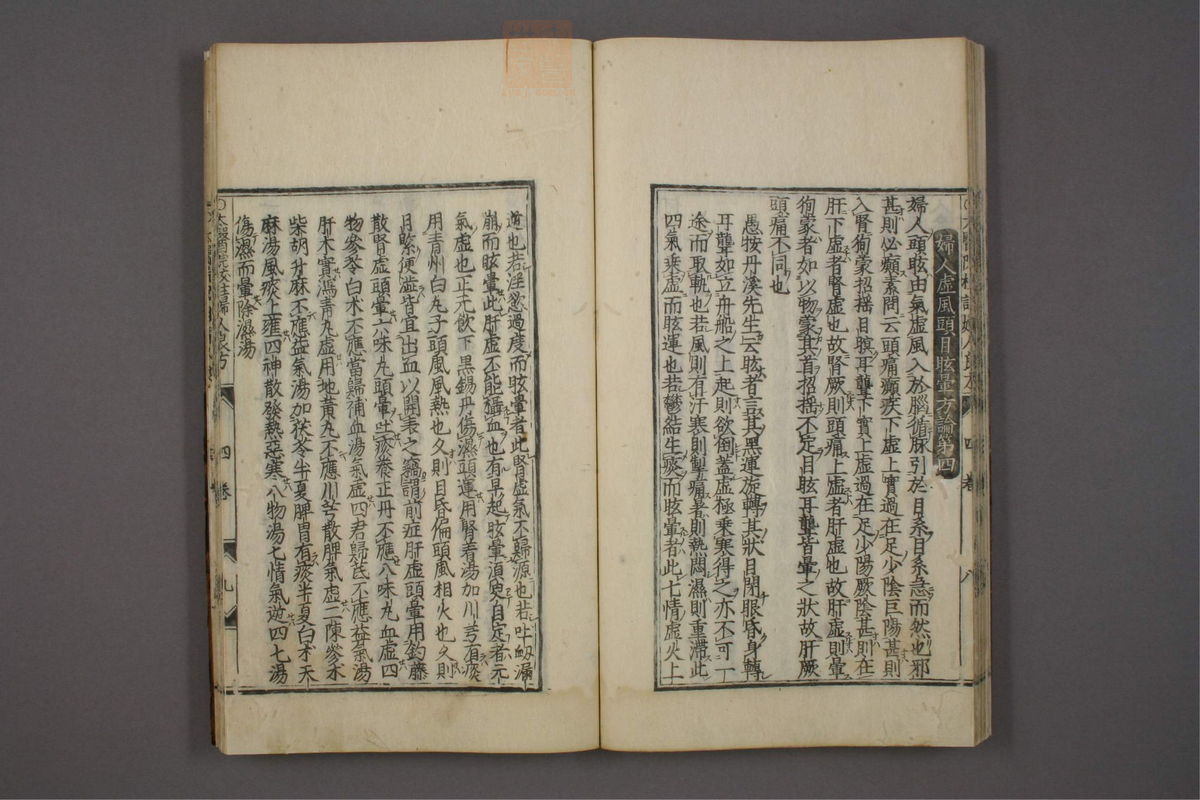 婦人虛風頭目眩暈方論第四
婦人頭眩由氣虛風入於腦循脉引於目系目系急而然也邪
甚則必癲素問云頭痛癲疾下虛上實過在足少陰巨陽甚則
入腎徇蒙招搖目瞑耳聾下實上虛過在足少陽厥陰甚則在
肝下虛者腎虛也故腎厥則頭痛上虛者肝虛也故肝虛則暈
徇蒙者如以物蒙其首招搖不定目眩耳聾皆暈之狀故肝厥
頭痛不同也
愚按丹溪先生云眩者言其黑運旋轉其狀目閉眼昏身轉
耳聾如立舟船之上起則欲倒蓋虛極乘寒得之亦不可一
途而取軌也若風則有汗寒則掣痛暑則熱悶濕則重滯此
四氣乘虛而眩運也若鬱結生痰而眩暈者此七情虛火上
逆也若淫慾過度而眩暈者此腎虛氣不歸源也若吐衂漏
崩而眩暈此肝虛不能攝血也有早起眩暈須臾自定者元
氣虛也正元飲下黑錫丹傷濕頭運用腎着湯加川芎有痰
用青州白丸子頭風風熱也久則目昏偏頭風相火也久則
目緊便澁皆宜出血以開表之竊謂前症肝虛頭暈用鈎藤
散腎虛頭暈六味丸頭暈吐痰養正丹不應八味丸血虛四
物參苓白术不應當歸補血湯氣虛四君歸芪不應益氣湯
肝木實瀉青丸虛用地黃丸不應川芎散脾氣虛二陳參术
柴胡升麻不應益氣湯加茯苓半夏脾胃有痰半夏白术天
麻湯風痰上壅四神散發熱惡寒八物湯七情氣逆四七湯
傷濕而暈除濕湯
四卷
八
四卷
九